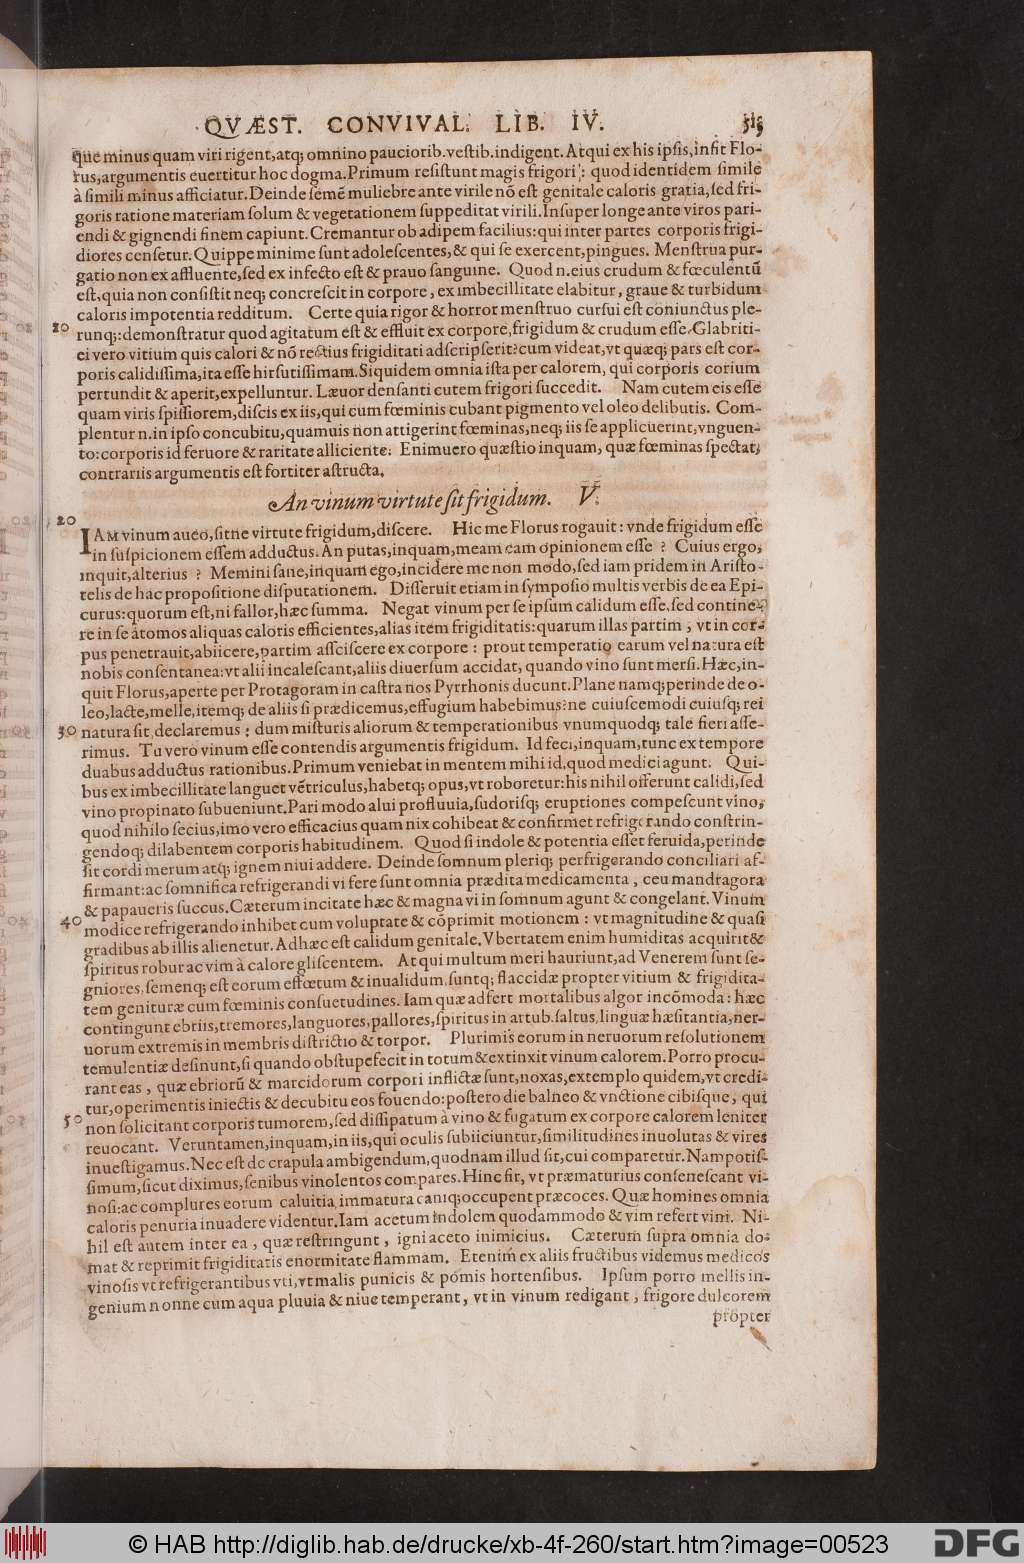 QVÆST. CONVIVAL. LIB. IV. 515
que minus quam viri rigent, atq; omnino pauciorib. vestib. indigent. Atqui ex his ipsis, insit Flo-
rus, argumentis euertitur hoc dogma. Primum resistunt magis frigori: quod identidem simile
à simili minus afficiatur. Deinde semē muliebre ante virile nō est genitale caloris gratia, sed fri-
goris ratione materiam solum & vegetationem suppeditat virili. Insuper longe ante viros pari-
endi & gignendi finem capiunt. Cremantur ob adipem facilius: qui inter partes corporis frigi-
diores censetur. Quippe minime sunt adolescentes, & qui se exercent, pingues. Menstrua pur-
gatio non ex affluente, sed ex infecto est & prauo sanguine. Quod n. eius crudum & fœculentū
est, quia non consistit neq; concrescit in corpore, ex imbecillitate elabitur, graue & turbidum
caloris impotentia redditum. Certe quia rigor & horror menstruo cursui est coniunctus ple-
10 runq;: demonstratur quod agitatum est & effluit ex corpore, frigidum & crudum esse. Glabriti-
ei vero vitium quis calori & nō rectius frigiditati adscripserit? cum videat, vt quæq; pars est cor-
poris calidissima, ita esse hirsutissimam. Siquidem omnia ista per calorem, qui corporis corium
pertundit & aperit, expelluntur. Læuor densanti cutem frigori succedit. Nam cutem eis esse
quam viris spissiorem, discis ex iis, qui cum fœminis cubant pigmento vel oleo delibutis. Com-
plentur n. in ipso concubitu, quamuis non attigerint fœminas, neq; iis se applicuerint, vnguen-
to: corporis id feruore & raritate alliciente. Enimuero quæstio inquam, quæ fœminas spectat,
contrariis argumentis est fortiter astructa.
An vinum virtute sit frigidum. V.
20 IAM vinum aueo, sitne virtute frigidum, discere. Hic me Florus rogauit: vnde frigidum esse
in suspicionem essem adductus. An putas, inquam, meam eam opinionem esse? Cuius ergo,
inquit, alterius? Memini sane, inquam ego, incidere me non modo, sed iam pridem in Aristo-
telis de hac propositione disputationem. Disseruit etiam in symposio multis verbis de ea Epi-
curus: quorum est, ni fallor, hæc summa. Negat vinum per se ipsum calidum esse, sed contine-
re in se atomos aliquas caloris efficientes, alias item frigiditatis: quarum illas partim, vt in cor-
pus penetrauit, abiicere, partim assciscere ex corpore: prout temperatio earum vel natura est
nobis consentanea: vt alii incalescant, aliis diuersum accidat, quando vino sunt mersi. Hæc, in-
quit Florus, aperte per Protagoram in castra nos Pyrrhonis ducunt. Plane namq; perinde de o-
leo, lacte, melle, itemq; de aliis si prædicemus, effugium habebimus: ne cuiuscemodi cuiusq; rei
30 natura sit declaremus: dum misturis aliorum & temperationibus vnumquodq; tale fieri asse-
rimus. Tu vero vinum esse contendis argumentis frigidum. Id feci, inquam, tunc ex tempore
duabus adductus rationibus. Primum veniebat in mentem mihi id, quod medici agunt. Qui-
bus ex imbecillitate languet vētriculus, habetq; opus, vt roboretur: his nihil offerunt calidi, sed
vino propinato subueniunt. Pari modo alui profluuia, sudorisq; eruptiones compescunt vino,
quod nihilo secius, imo vero efficacius quam nix cohibeat & confirmet refrigerando constrin-
gendoq; dilabentem corporis habitudinem. Quod si indole & potentia esset feruida, perinde
sit cordi merum atq; ignem niui addere. Deinde somnum pleriq; perfrigerando conciliari af-
firmant: ac somnifica refrigerandi vi fere sunt omnia prædita medicamenta, ceu mandragora
& papaueris succus. Cæterum incitate hæc & magna vi in somnum agunt & congelant. Vinum
40 modice refrigerando inhibet cum voluptate & cōprimit motionem: vt magnitudine & quasi
gradibus ab illis alienetur. Adhæc est calidum genitale. Vbertatem enim humiditas acquirit &
spiritus robur ac vim à calore gliscentem. Atqui multum meri hauriunt, ad Venerem sunt se-
gniores, semenq; est eorum effœtum & inualidum, suntq; flaccidæ propter vitium & frigidita-
tem genituræ cum fœminis consuetudines. Iam quæ adfert mortalibus algor incōmoda: hæc
contingunt ebriis, tremores, languores, pallores, spiritus in artub. saltus, linguæ hæsitantia, ner-
uorum extremis in membris districtio & torpor. Plurimis eorum in neruorum resolutionem
temulentiæ desinunt, si quando obstupefecit in totum & extinxit vinum calorem. Porro procu-
rant eas, quæ ebriorū & marcidorum corpori inflictæ sunt, noxas, extemplo quidem, vt credi-
tur, operimentis iniectis & decubitu eos fouendo: postero die balneo & vnctione cibisque, qui
50 non solicitant corporis tumorem, sed dissipatum à vino & fugatum ex corpore calorem leniter
reuocant. Veruntamen, inquam, in iis, qui oculis subiiciuntur, similitudines inuolutas & vires
inuestigamus. Nec est de crapula ambigendum, quodnam illud sit, cui comparetur. Nam potis-
simum, sicut diximus, senibus vinolentos compares. Hinc fit, vt præmaturius consenescant vi-
nosi: ac complures eorum caluitia immatura caniq; occupent præcoces. Quæ homines omnia
caloris penuria inuadere videntur. Iam acetum indolem quodammodo & vim refert vini. Ni-
hil est autem inter ea, quæ restringunt, igni aceto inimicius. Cæterum supra omnia do-
mat & reprimit frigiditatis enormitate flammam. Etenim ex aliis fructibus videmus medicos
vinosis vt refrigerantibus vti, vt malis punicis & pomis hortensibus. Ipsum porro mellis in-
genium nonne cum aqua pluuia & niue temperant, vt in vinum redigant, frigore dulcorem
propter
© HAB http://diglib.hab.de/drucke/xb-4f-260/start.htm?image=00523
DFG